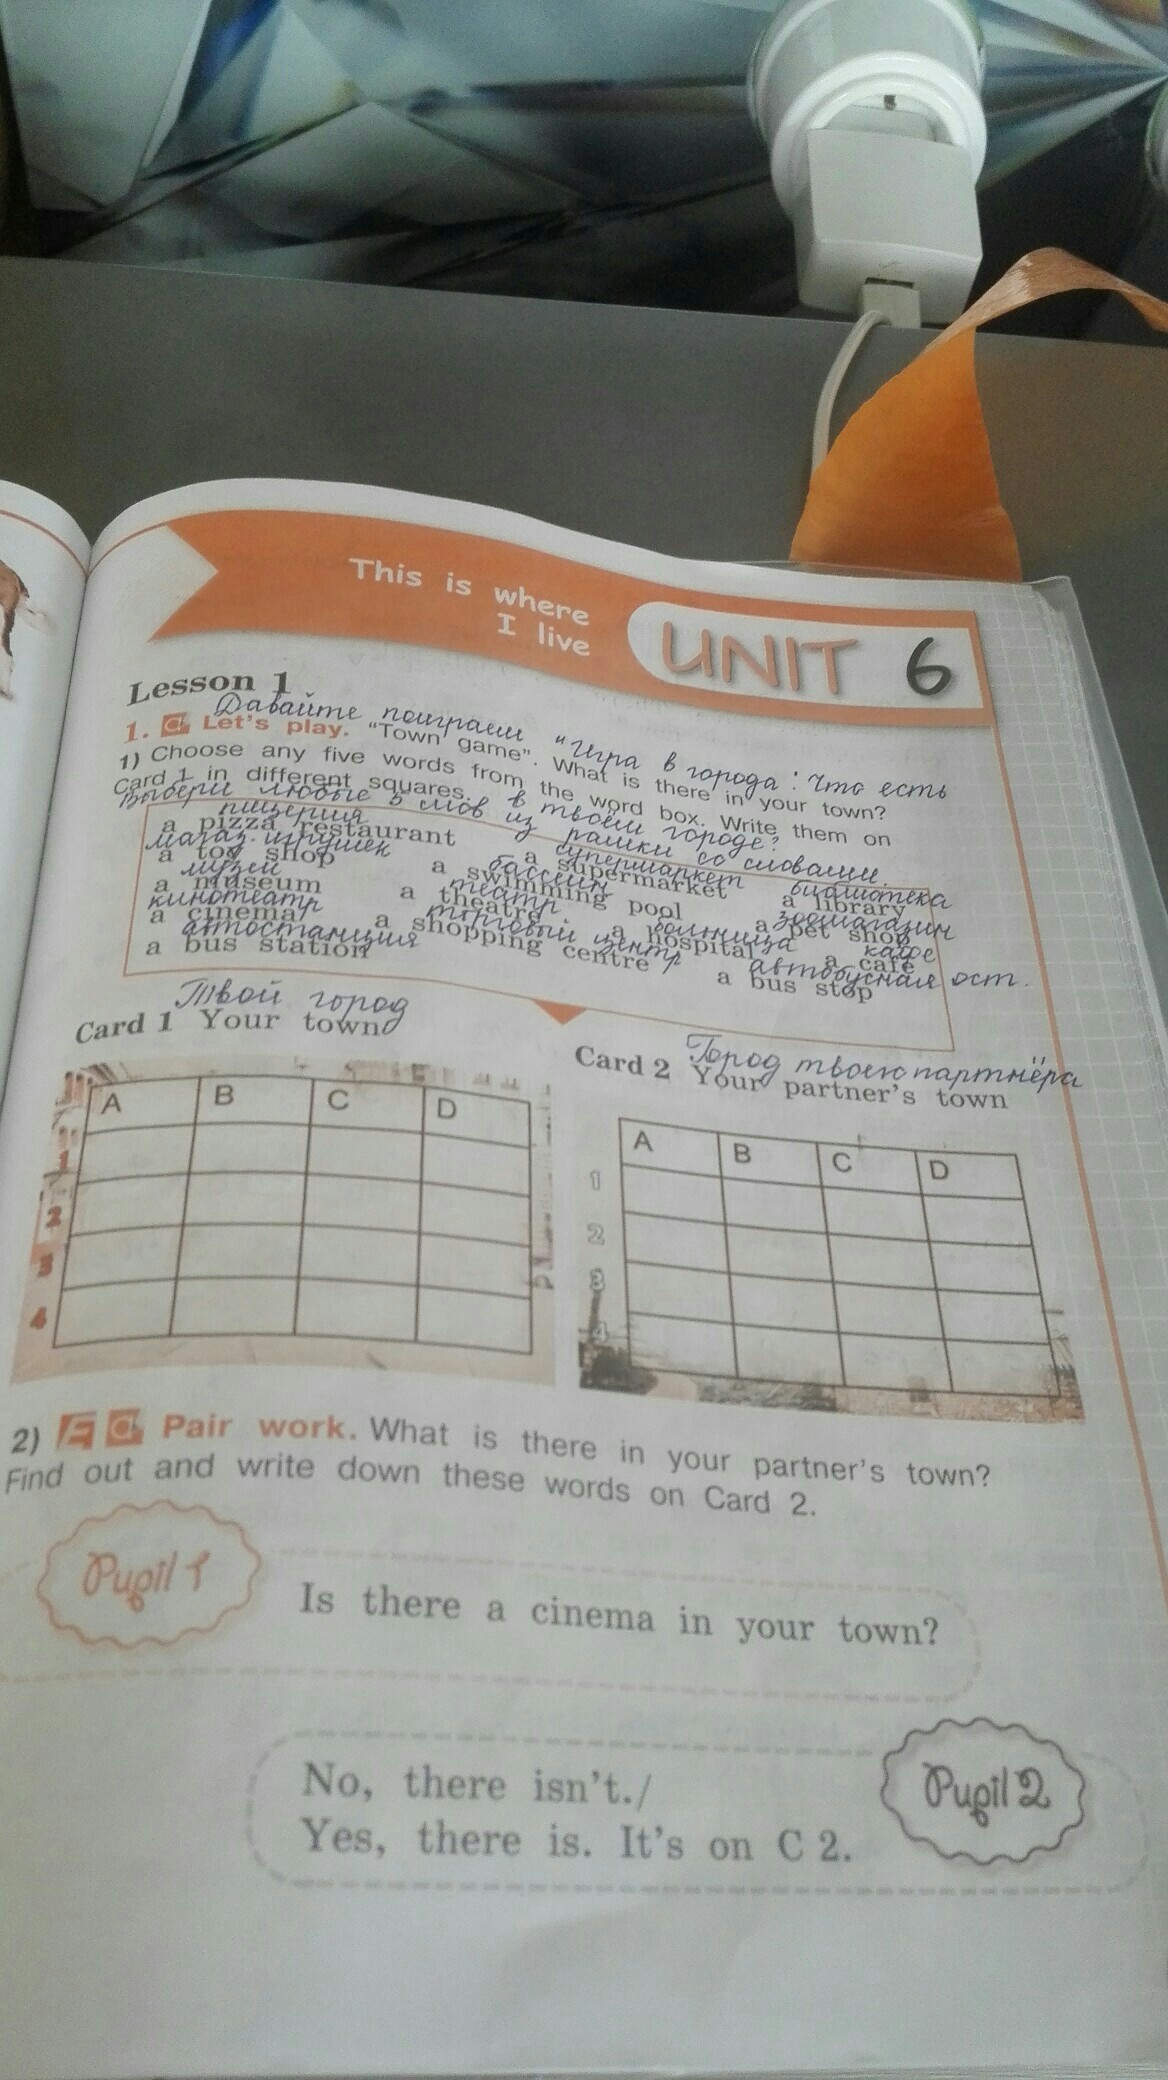 This is where
I live
UNIT 6
Lesson 1
Давайте поиграем "Игра в города: Что есть
1. Let's play. "Town game". What is there in your town?
1) Choose any five words from the word box. Write them on
Card 1 in different squares. в твоём городе?
Выбери любые 5 слов из рамки со словами.
пиццерия
a pizza restaurant
супермаркет
a supermarket
магаз. игрушек
a toy shop
бассейн
a swimming pool
библиотека
a library
музей
a museum
театр
a theatre
зоомагазин
a pet shop
кинотеатр
a cinema
торговый центр
a shopping centre
больница
a hospital
кафе
a café
автостанция
a bus station
автобусная ост.
a bus stop
Твой город
Card 1 Your town
A B C D
1
2
3
4
Город твоего партнёра
Card 2 Your partner's town
A B C D
1
2
3
4
2) Pair work. What is there in your partner's town?
Find out and write down these words on Card 2.
Pupil 1
Is there a cinema in your town?
No, there isn't./
Yes, there is. It's on C 2.
Pupil 2